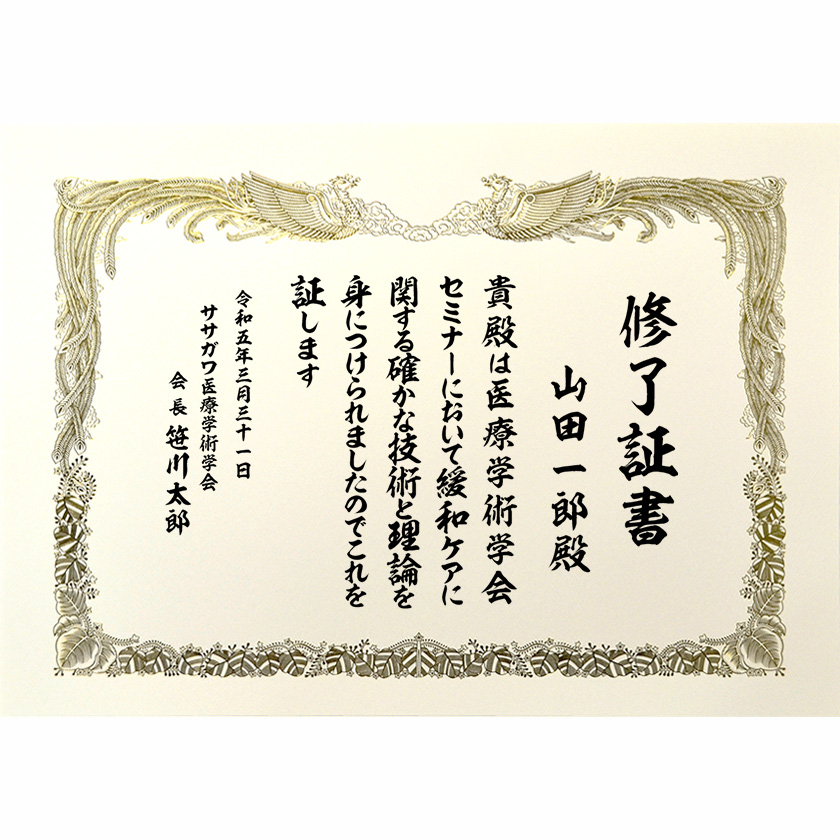 修了証書
山田一郎殿
貴殿は医療学術学会
セミナーにおいて緩和ケアに
関する確かな技術と理論を
身につけられましたのでこれを
証します
令和五年三月三十一日
ササガワ医療学術学会
会長 笹川太郎